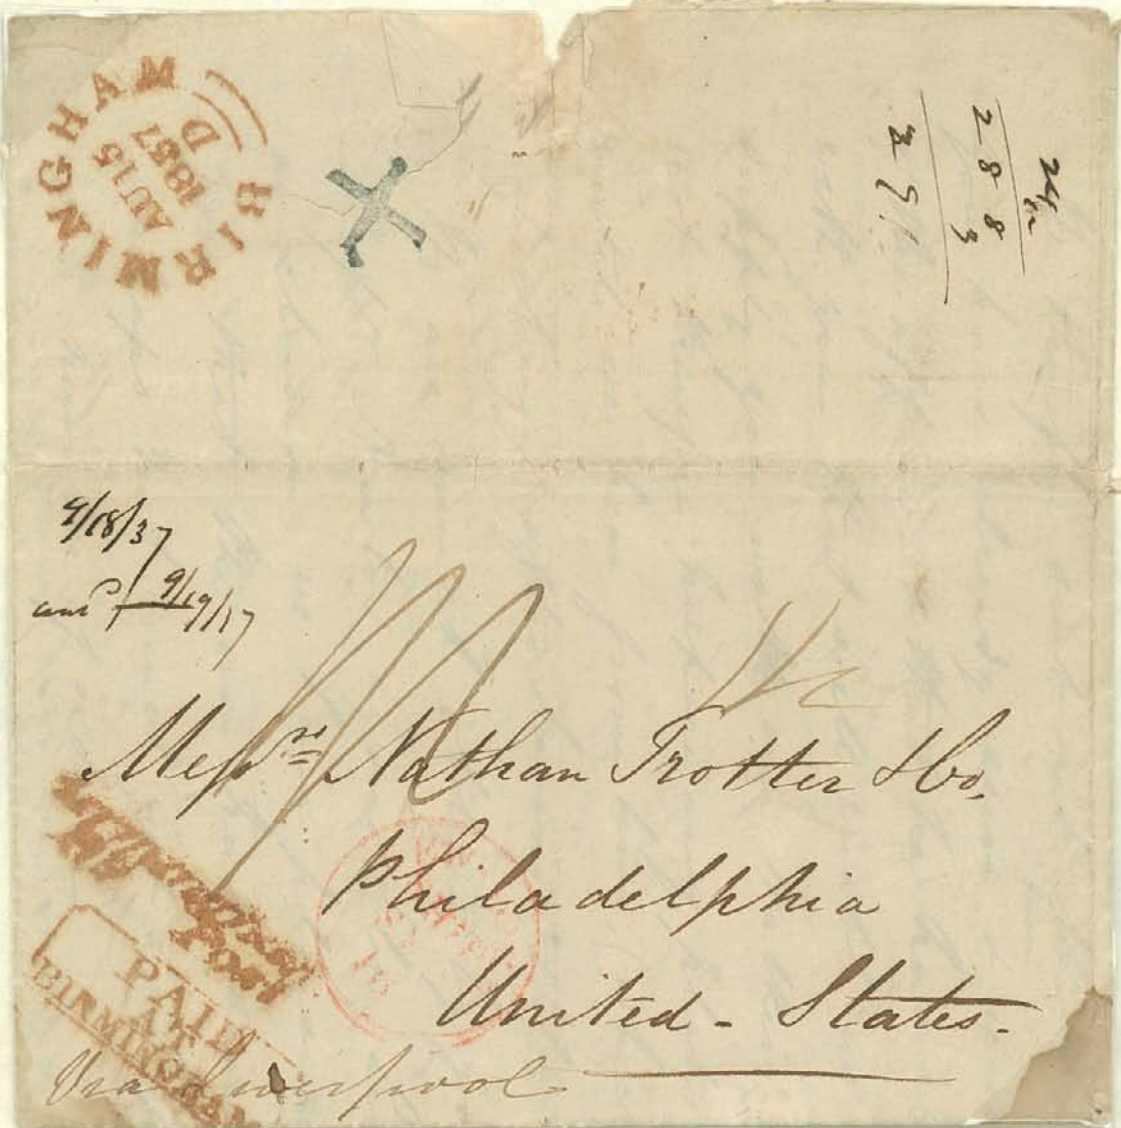 BIRMINGHAM
AU 15
1837
D
24/12
288
3
291
9/19/17
Mess.rs Nathan Trotter & Co.
Philadelphia
United - States.
PAID
AT
BIRMINGHAM
Via Liverpool